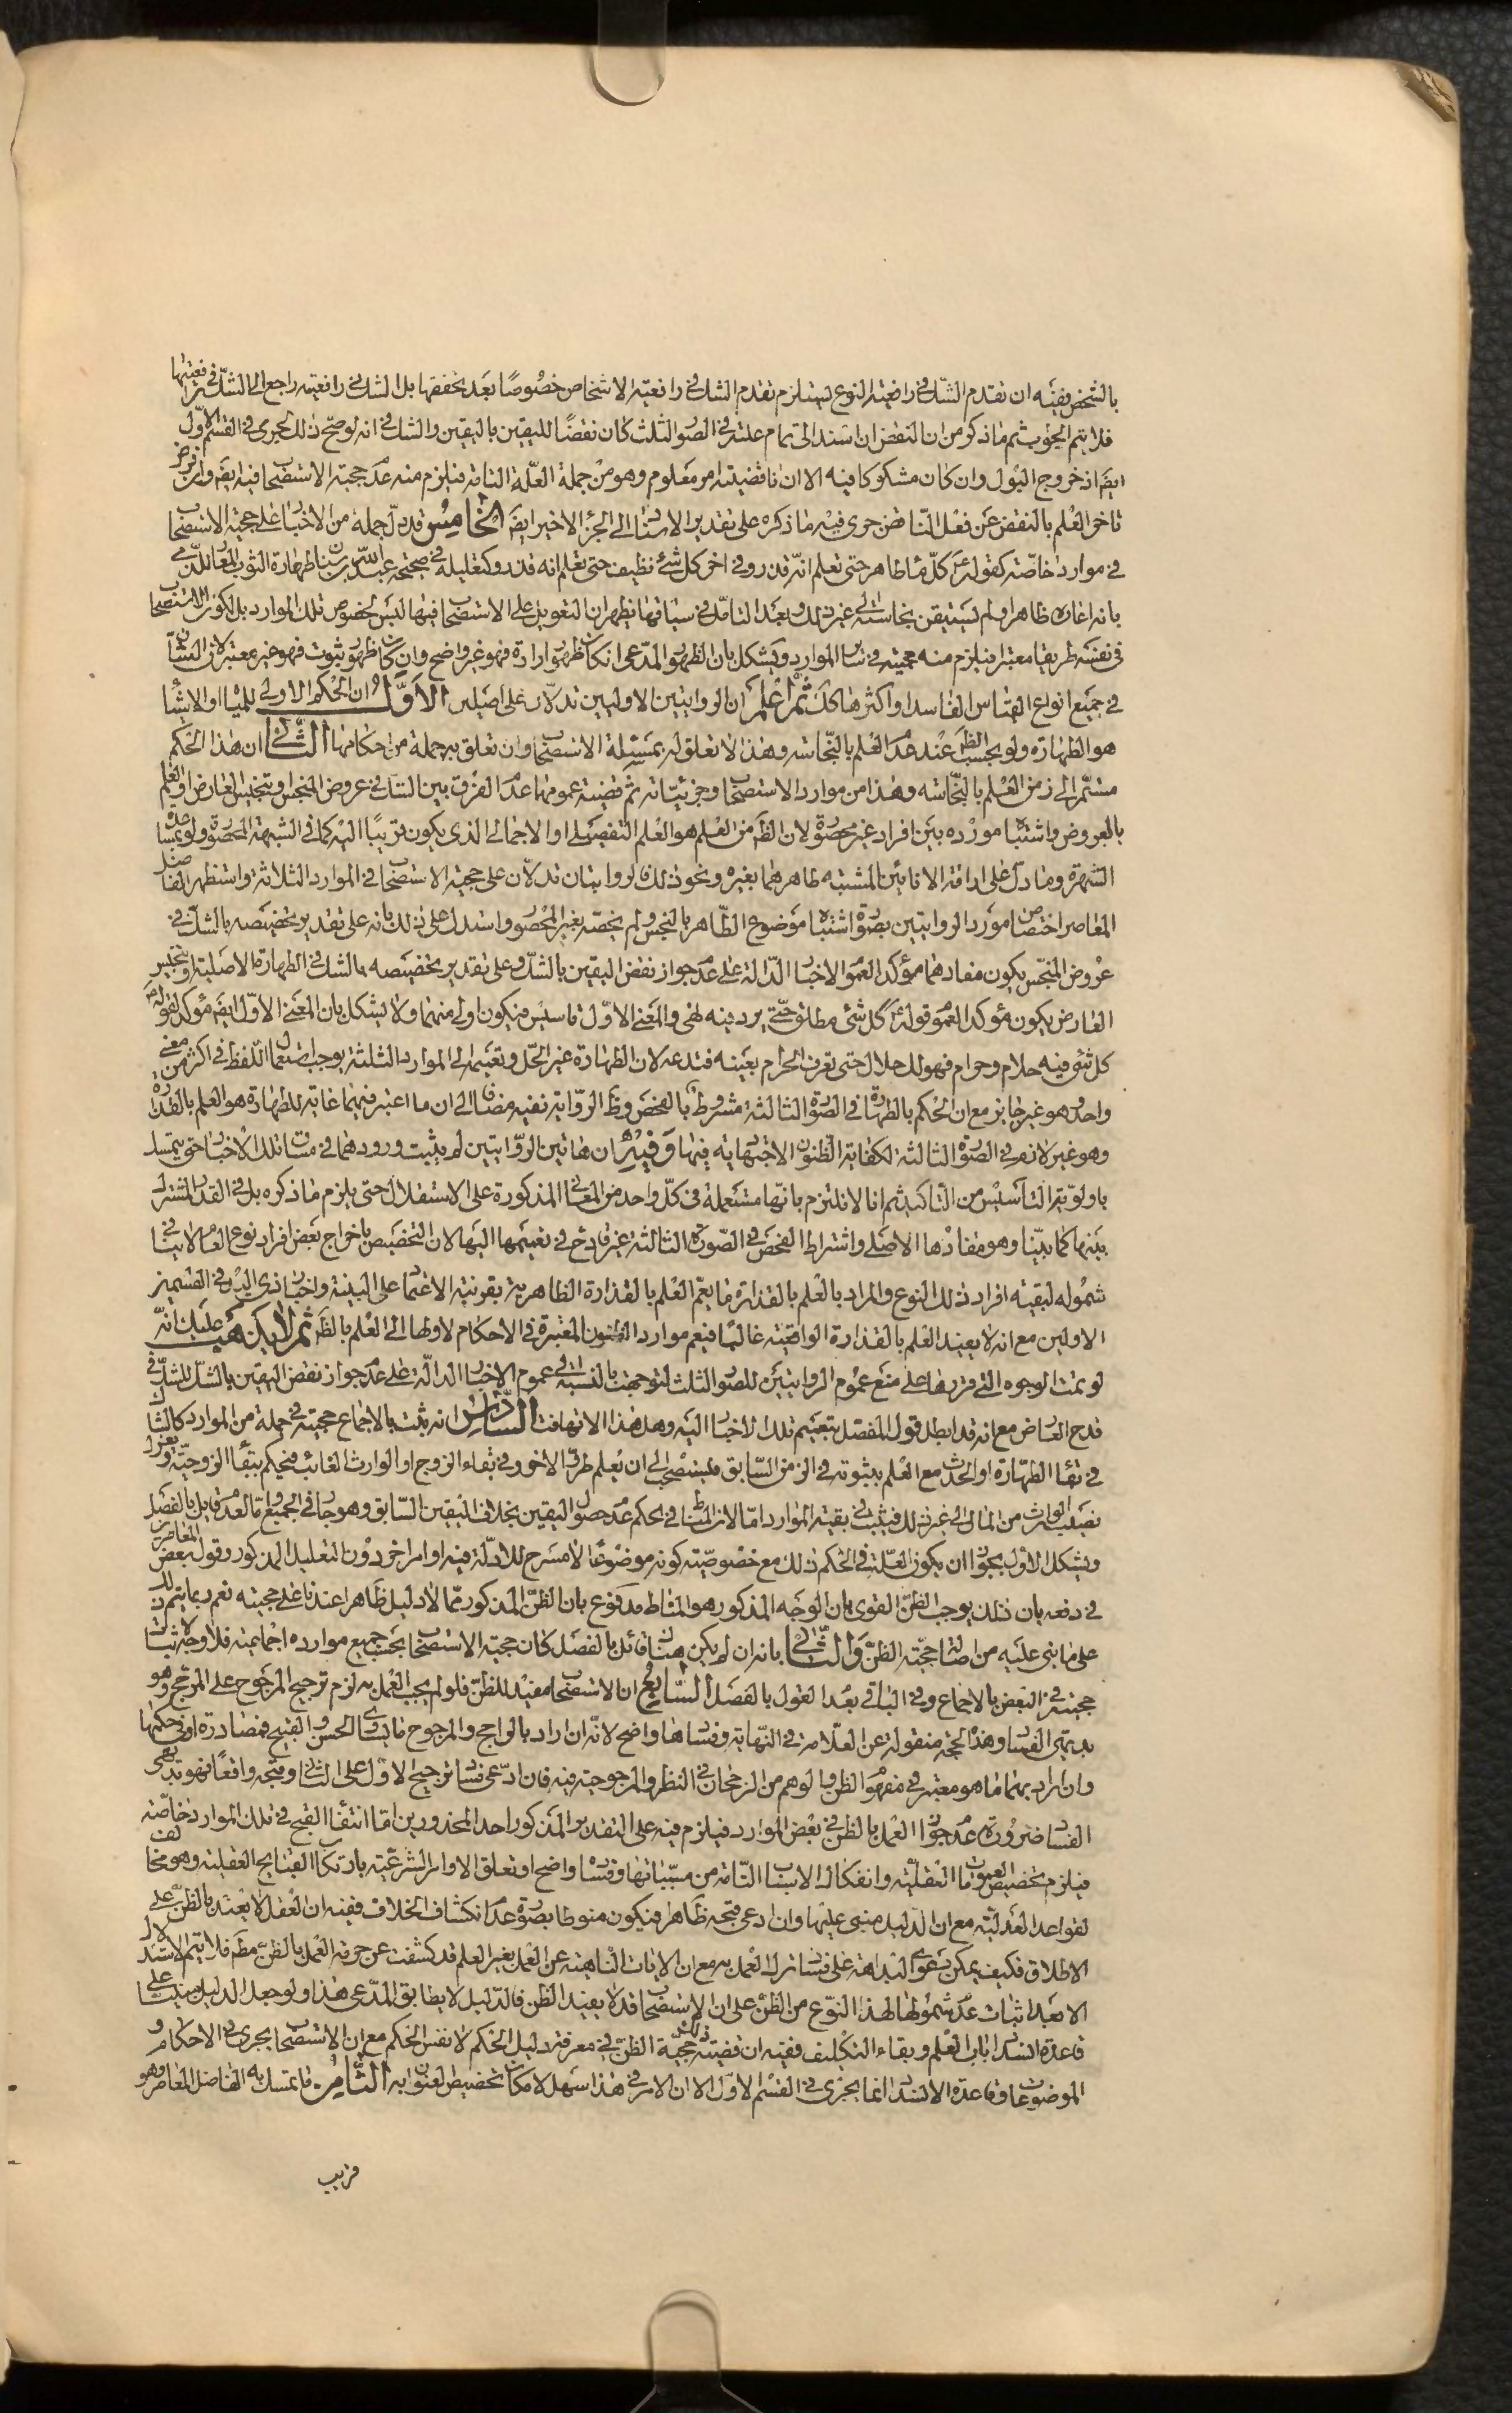 بالشخص ففيه ان تقدم الشك في رافعية النوع يستلزم تقدم الشك في رافعية الاشخاص خصوصًا بعد تحققها بل الشك في رافعيته راجع الى الشك في رافعيتها
فلا يتم الجواب ثم ما ذكر من ان النقض ان اسند الى تمام علته في الصور الثلث كان نقضًا لليقين باليقين والشك في انه لو صح ذلك لجرى في القسم الاول
ايضَ اذ خروج البول وان كان مشكوكا فيه الا ان ناقضيته امر معلوم وهو من جملة العلّة التامة فيلزم منه عدم حجية الاستصحاب فيه ايضَ وان فرض
تاخر العلم بالنقض عن فعل الناقض جرى فيه ما ذكره على تقدير الاسناد الى الجزء الاخير ايضَ الخامس قد دلّ جملة من الاخبار على حجية الاستصحاب
في موارد خاصّة كقوله ع كلّ ماء طاهر حتى تعلم انّه قذر وفي اخر كل شئ نظيف حتى تعلم انه قذر وكتعليله في صحيحة عبد الله بن سنان طهارة الثوب المعار للذمي
بانه اعاره طاهرا ولم يستيقن نجاسته الى غير ذلك وبعد التامّل في سياقها يظهر ان التعويل على الاستصحاب فيها ليس لخصوص تلك الموارد بل لكون الاستصحاب
في نفسه طريقا معتبرا فيلزم منه حجيته في سائر الموارد ويشكل بان الظهور المدّعى ان كان ظهور ارادة فهو غير واضح وان كان ظهور ثبوت فهو غير معتبر لان الشان
في جميع انواع القياس الفاسد او اكثرها كك ثم اعلم ان الروايتين الاوليين تدلان على اصلين الاوّل ان الحكم الاولي للمياه او الاشياء
هو الطهارة ولو بحسب الظ عند عدم العلم بالنّجاسة وهذا لا تعلق له بمسئلة الاستصحاب وان تعلق به جملة من احكامها الثاني ان هذا الحكم
مستمّر الى زمن العلم بالنّجاسة وهذا من موارد الاستصحاب وجزئياته ثم قضية عمومها عدم الفرق بين الشك في عروض المنجس وتنجيس العارض او العلم
بالعروض واشتباه مورده بين افراد غير محصورة لان الظ من العلم هو العلم التفصيلي او الاجمالي الذى يكون قريبًا اليه كما في الشبهة المحصورة ولو بمساعدة
الشهرة وما دل على اراقة الانائين المشتبه طاهرهما بغيره ونحو ذلك فالروايتان تدلّان على حجية الاستصحاب في الموارد الثلاثة واستظهر الفاضل
المعاصر اختصاص مورد الروايتين بصورة اشتباه موضوع الطّاهر بالنجس ولم يخصّه بغير المحصور واستدل على ذلك بانه على تقدير تخصيصه بالشك في
عروض المنجّس يكون مفادهما مؤكد العموم الاخبار الدالة على عدم جواز نقض اليقين بالشك وعلى تقدير تخصيصه بالشك في الطهارة الاصلية او تنجيس
العارض يكون مؤكد العموم قوله ع كل شئ مطلق حتّى يرد فيه نهى والمعنى الاوّل تاسيس فيكون اولى منهما ولا يشكل بان المعنى الاوّل ايضَ مؤكد لقوله ع
كل شئ فيه حلال وحرام فهو لك حلال حتى تعرف الحرام بعينه فتدعه لان الطهارة غير الحلّ وتعميمه الى الموارد الثلثة يوجب استعمال اللّفظ في اكثر من معنى
واحد وهو غير جايز مع ان الحكم بالطهارة في الصورة الثالثة مشروط بالفحص وظ الرّواية نفيه مضافا الى ان ما اعتبر فيهما غاية للطهارة هو العلم بالقذارة
وهو غير لازم في الصورة الثالثة لكفاية الظنون الاجتهادية فيها وفيه ان هاتين الرّوايتين لم يثبت ورودهما في مساق تلك الاخبار حتى يتمسك
باولويّة التأسيس من التاكيد ثم انا لا نلتزم بانّها مستعملة في كلّ واحد من المعانى المذكورة على الاستقلال حتى يلزم ما ذكره بل في القدر المشترك
بينها كما بيّنا وهو مفادها الاصلى واشتراط الفحص في الصّورة الثالثة غير قادح في تعميمها اليها لان التخصيص باخراج بعض افراد نوع العام لا ينافي
شموله لبقية افراد ذلك النوع والمراد بالعلم بالقذارة ما يعمّ العلم بالقذارة الظاهرية بقرينة الاعتماد على البينة واخبار ذى اليد في القسمين
الاولين مع انه لا يفيد العلم بالقذارة الواقعية غالبًا فيعم موارد الظنون المعتبرة في الاحكام لاولها الى العلم بالظ ثم لا يكن عليك انّه
لو تمت الوجوه التى قررها على منع عموم الروايتين للصور الثلث لتوجهت بالنسبة الى عموم الاخبار الدالّة على عدم جواز نقض اليقين بالشكّ للشكّ في
قدح العارض مع انه قد ابطل قول المفصّل بتعميم تلك الاخبار اليه وهل هذا الا تهافت السّادس انه ثبت بالاجماع حجيته في جملة من الموارد كالشك
في بقاء الطهارة او الحدث مع العلم بثبوته في الزمن السّابق فيستصحب الى ان يعلم طرق الاخر وفي بقاء الزوج او الوارث الغائب فيحكم ببقاء الزوجيّة ويعزل
نصيب الوارث من المال الى غير ذلك فيثبت في بقية الموارد امّا لان المناط في الحكم عدم حصول اليقين بخلاف اليقين السّابق وهو جار في الجميع او لعدم قايل بالفصل
ويشكل الاول بجواز ان يكون العلّة في الحكم ذلك مع خصوصيّته كونه موضوعًا لا مسرح للادلّة فيه او امرا اخر دون التعليل المذكور وقول بعض المعاصرين
في دفعه بان ذلك يوجب الظنّ القوى بان الوجه المذكور هو المناط مدفوع بان الظنّ المذكور ممّا لا دليل ظاهرا عندنا على حجيته نعم ربما يتم ذلك
على ما بنى عليه من اصالة حجيّة الظنّ والثّاني بانه ان لم يكن هناك قائل بالفصل كان حجية الاستصحاب بحسب جميع موارده اجماعية فلا وجه لاثبات
حجيته في البعض بالاجماع وفي الباقي بعدم القول بالفصل السّابع ان الاستصحاب مفيد للظنّ فلو لم يجب العمل به لزم ترجيح المرجوح على الراجح وهو
بديهى الفساد وهذه الحجة منقولة عن العلّامة في النّهاية وفسادها واضح لانّه ان اراد بالراجح والمرجوح ما يساوى الحسن والقبيح فمصادرة او في حكمها
وان اراد بهما ما هو معتبر في مفهوم الظن والوهم من الرجحان في النظر والمرجوحية فيه فان ادّعى فساد ترجيح الاوّل على الثانى وقبحه واقعًا فهو بديهى
الفساد ضرورة عدم جواز العمل بالظن في بعض الموارد فيلزم فيه على التقدير المذكور احد المحذورين اما انتفاء القبح في تلك الموارد خاصّة
فيلزم تخصيص العمومات العقليّة وانفكاك الاسباب التّامة من مسبّباتها وفساده واضح او تعلق الاوامر الشرعيّة بارتكاب القبايح العقلية وهو مخالف
لقواعد العدلية مع ان الدليل مبنى عليها وان ادعى قبحه ظاهرا فيكون منوطا بصورة عدم انكشاف الخلاف ففيه ان العقل لا يعتد بالظنّ على
الاطلاق فكيف يمكن دعوى البداهة على فساد ترك العمل به مع ان الايات الناهية عن العمل بغير العلم قد كشفت عن حرمة العمل بالظنّ مطم فلا يتم الاستدلال
الا بعد اثبات عدم شمولها لهذا النوع من الظنّ على ان الاستصحاب قد لا يفيد الظن فالدّليل لا يطابق المدّعى هذا ولو جعل الدليل مبنيا على
قاعدة انسداد باب العلم وبقاء التكليف ففيه ان قضيته حجيّة الظنّ في معرفة دليل الحكم لا نفس الحكم مع ان الاستصحاب يجرى في الاحكام و
الموضوعات وقاعدة الانسداد انما يجرى في القسم الاوّل الا ان الامر في هذا سهل لامكان تخصيص العنوان به الثّامن ما تمسك به الفاضل المعاصر وهو
قريب